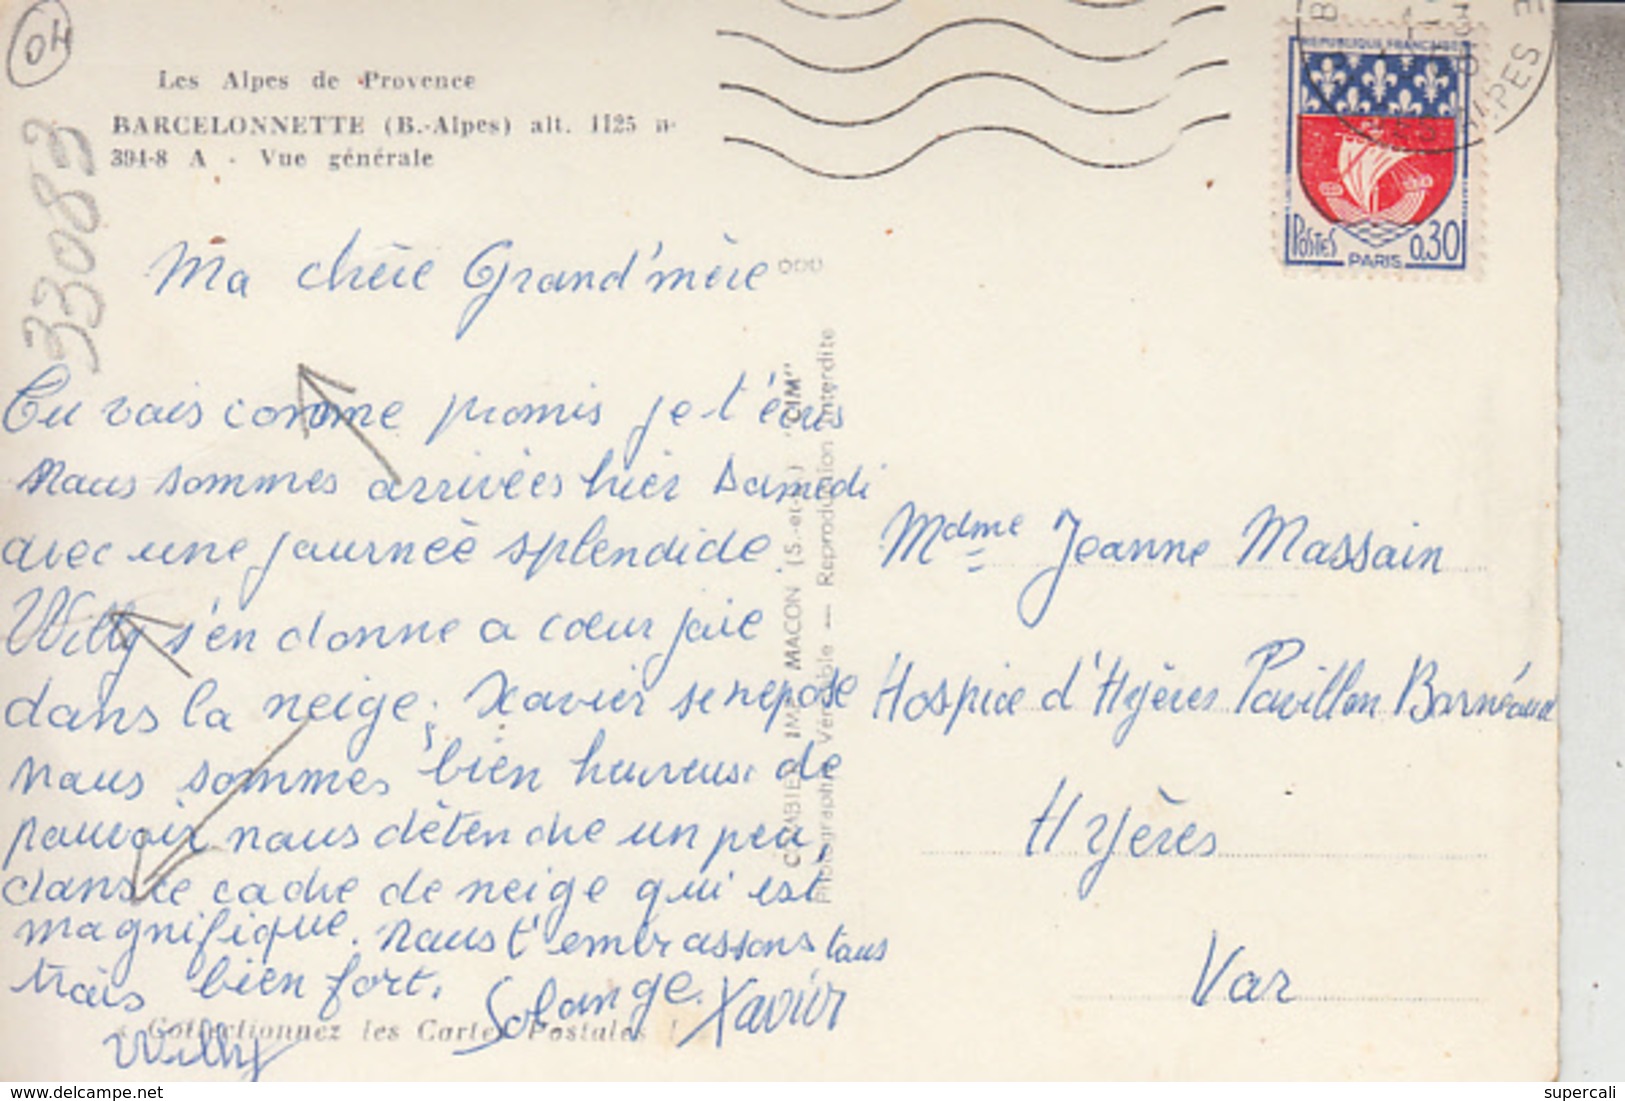 04
33083
Les Alpes de Provence
BARCELONNETTE (B.-Alpes) alt. 1125 m
394-8 A - Vue générale
RÉPUBLIQUE FRANÇAISE
POSTES PARIS 0,30
ALPES
Ma chère Grand'mère
Tu vois comme promis je t'écris
Nous sommes arrivées hier samedi
avec une journée splendide.
Willy s'en donne a coeur joie
dans la neige; Xavier se repose
nous sommes bien heureuse de
pouvoir nous détendre un peu,
dans ce cadre de neige qui est
magnifique. Nous t'embrassons tous
trois bien fort. Solange. Xavier
Willy
Collectionnez les Cartes Postales !
COMBIER IMP. MACON (S.-et-L.) "CIM"
Photographie Véritable — Reproduction Interdite
Mdme Jeanne Massain
Hospice d'Hyères Pavillon Barnéaud
Hyères
Var
delcampe.net
supercali